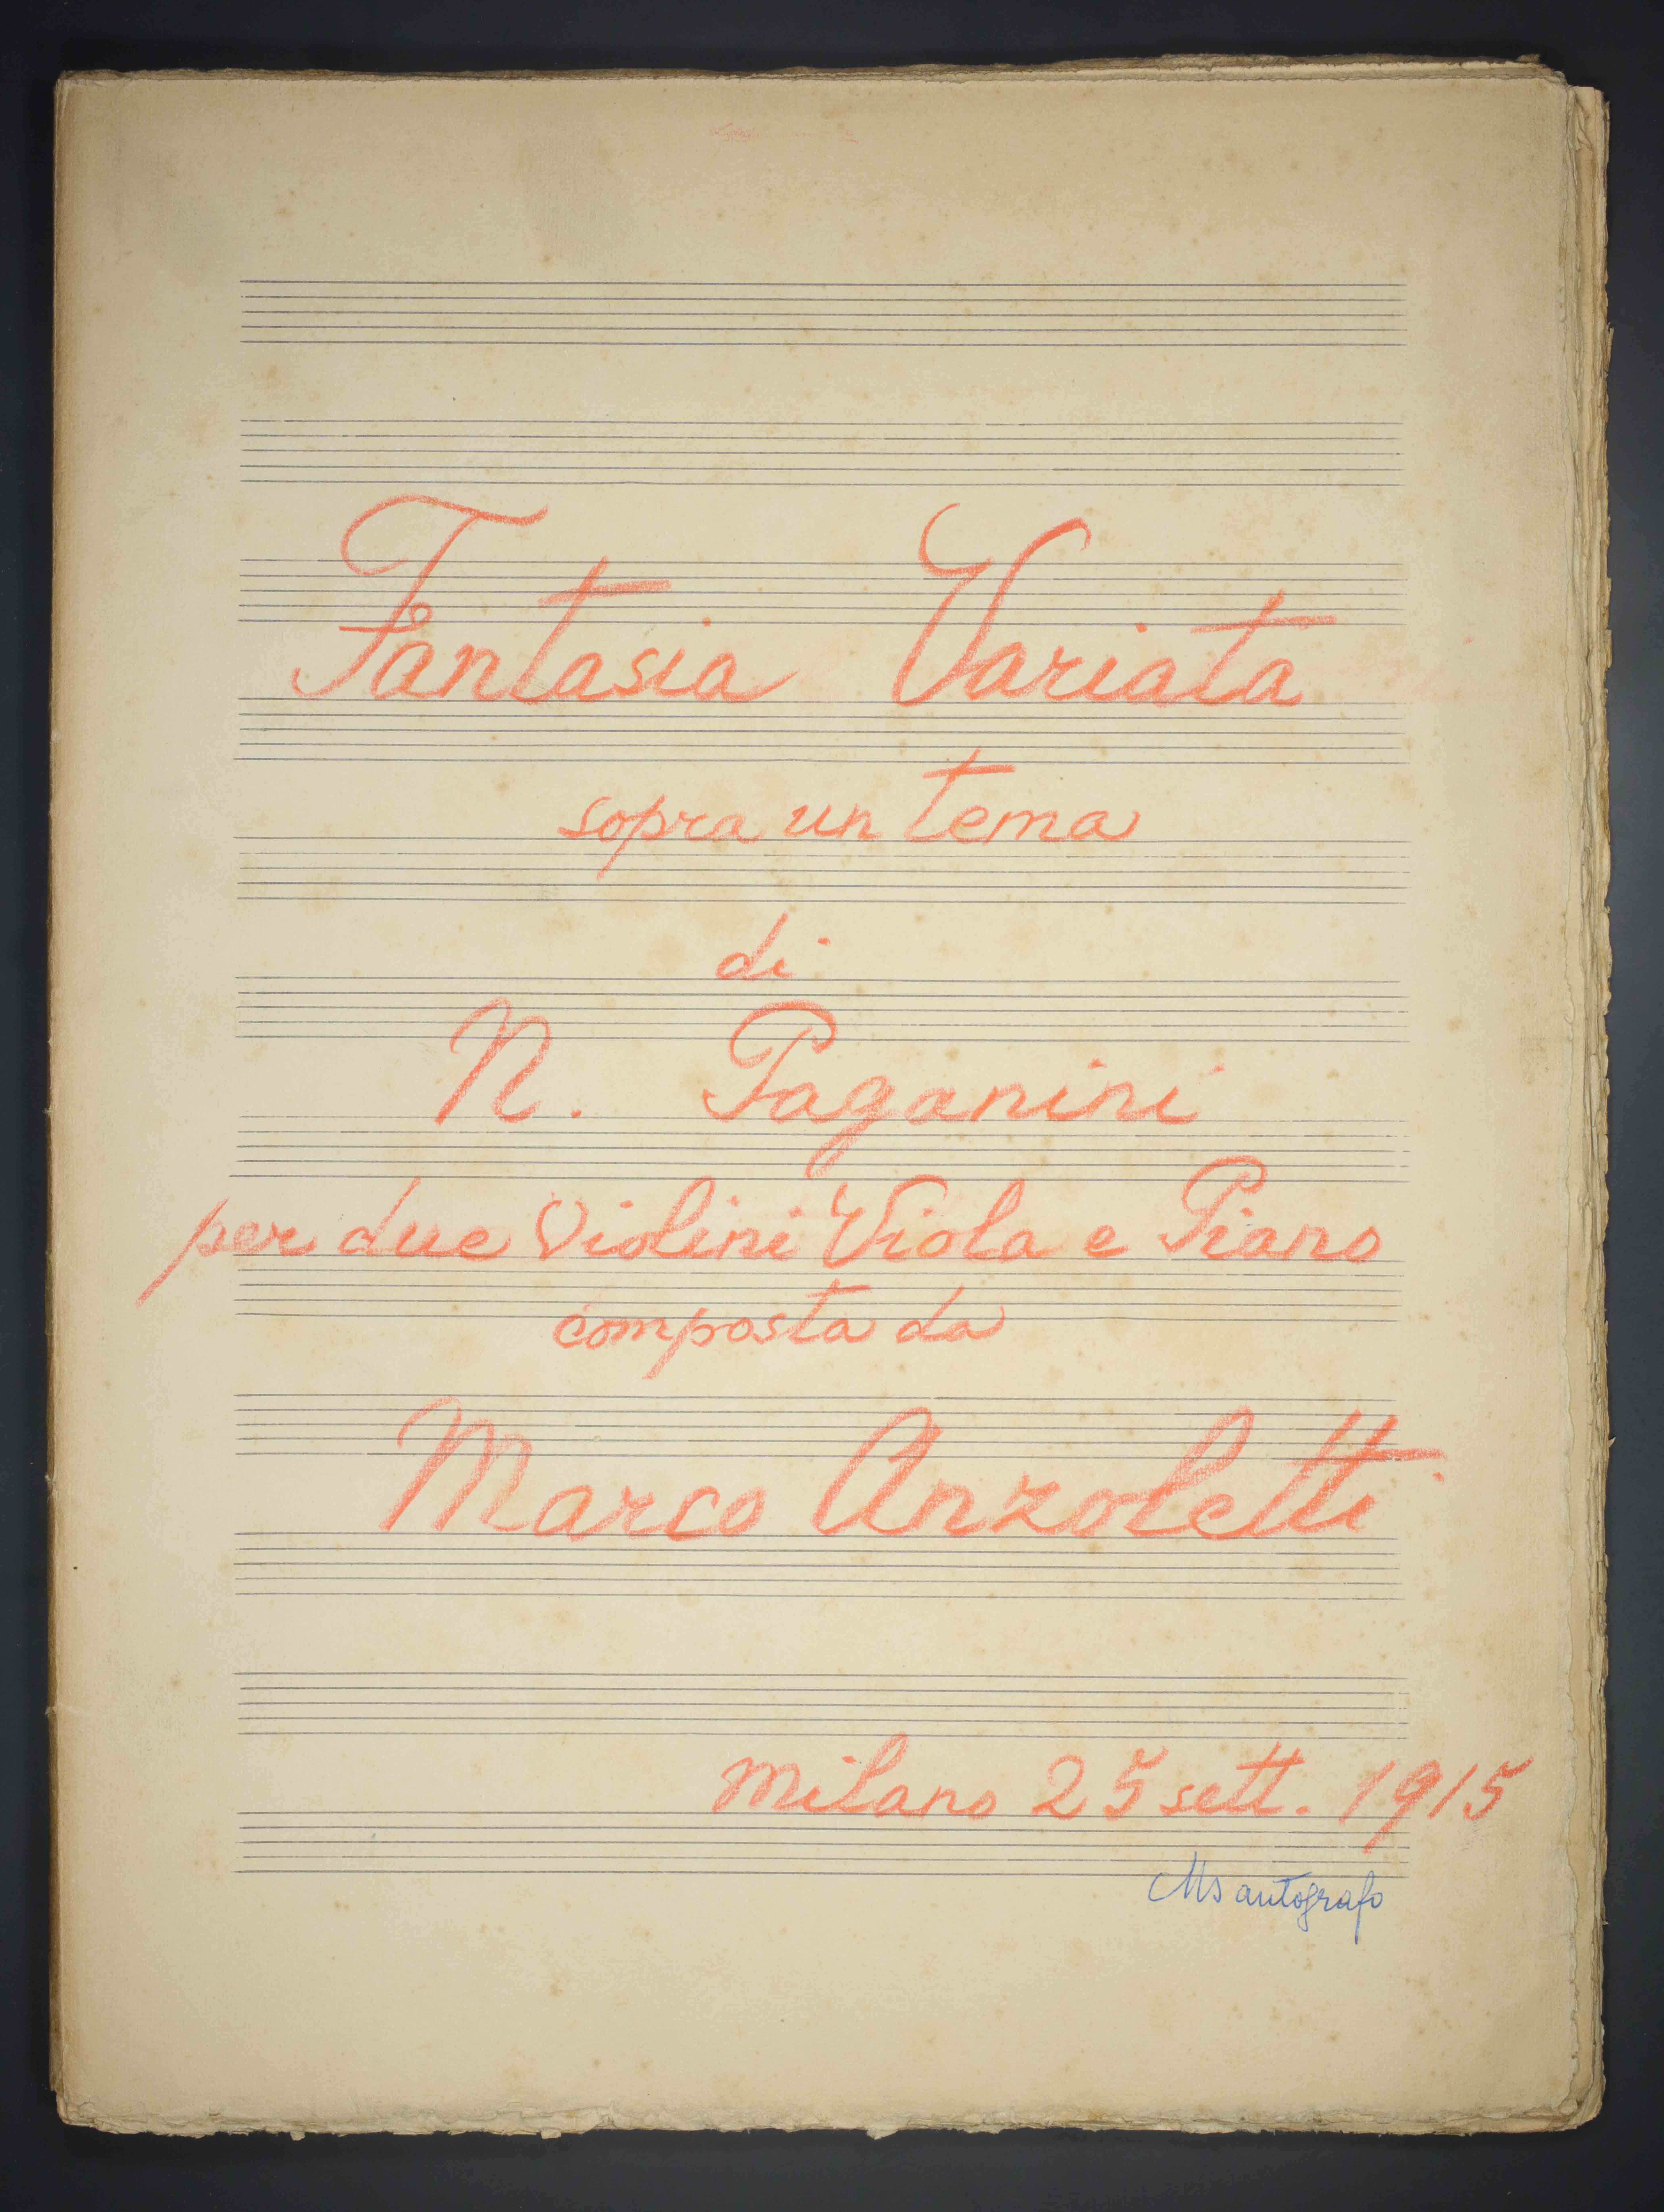 Fantasia Variata
sopra un tema
di
N. Paganini
per due Violini Viola e Piano
composta da
Marco Anzoletti
Milano 25 sett. 1915
Ms autografo